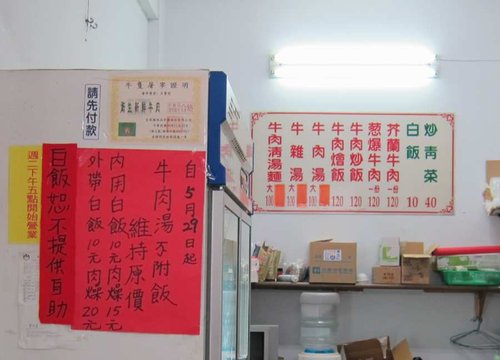 牛隻屠宰證明
衛生新鮮牛肉
請先付款
週二下午五點開始營業
白飯恕不提供自助
自5月29日起
牛肉湯不附飯
維持原價
內用白飯10元肉燥15元
外帶白飯10元肉燥20元
炒青菜 40
白飯 10
芥蘭牛肉 一份 120
葱爆牛肉 一份 120
牛肉炒飯 120
牛肉燴飯 120
牛肉湯 大 100
牛雜湯 大 100
牛肉清湯麵 大 100